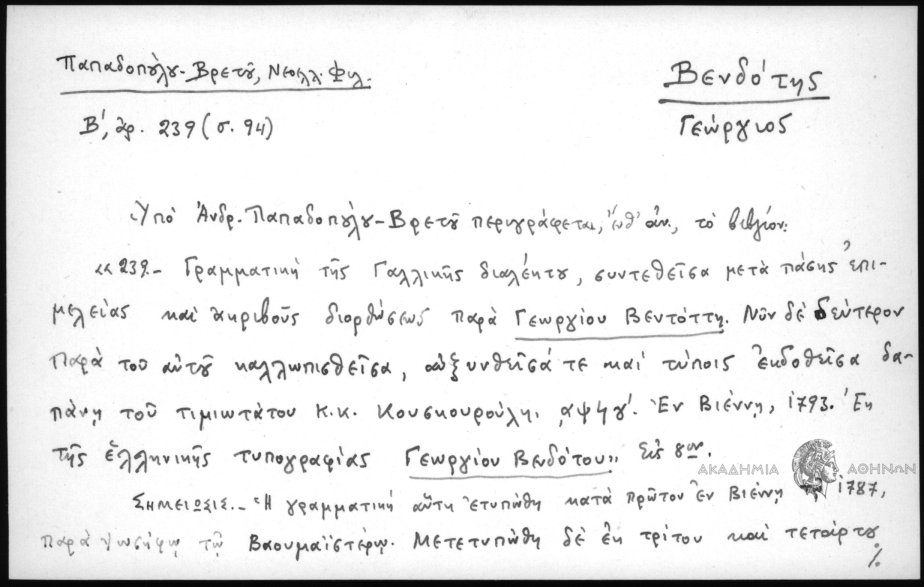 Παπαδοπούλου-Βρετοῦ, Νεοελλ. Φιλ.
Βενδότης
Γεώργιος
Β', ἀρ. 239 (σ. 94)
Ὑπὸ Ἀνδρ. Παπαδοπούλου-Βρετοῦ περιγράφεται, ἔνθ' ἀν., τὸ βιβλίον:
«239.- Γραμματικὴ τῆς Γαλλικῆς διαλέκτου, συντεθεῖσα μετὰ πάσης ἐπι-
μελείας καὶ ἀκριβοῦς διορθώσεως παρὰ Γεωργίου Βεντόττη. Νῦν δὲ δεύτερον
παρὰ τοῦ αὐτοῦ καλλωπισθεῖσα, αὐξυνθεῖσά τε καὶ τύποις ἐκδοθεῖσα δα-
πάνῃ τοῦ τιμιωτάτου Κ.Κ. Κουσκουρούλη, ͵αψϟγ'. Ἐν Βιέννῃ, 1793. Ἐκ
τῆς ἑλληνικῆς τυπογραφίας Γεωργίου Βενδότου» Εἰς 8ον.
ΑΚΑΔΗΜΙΑ ΑΘΗΝΩΝ
Σημείωσις.- Ἡ γραμματικὴ αὕτη ἐτυπώθη κατὰ πρῶτον ἐν Βιέννῃ τῷ 1787,
παρὰ Ἰωσήφῳ τῷ Βαουμαϊστέρῳ. Μετετυπώθη δὲ ἐκ τρίτου καὶ τετάρτου
./.